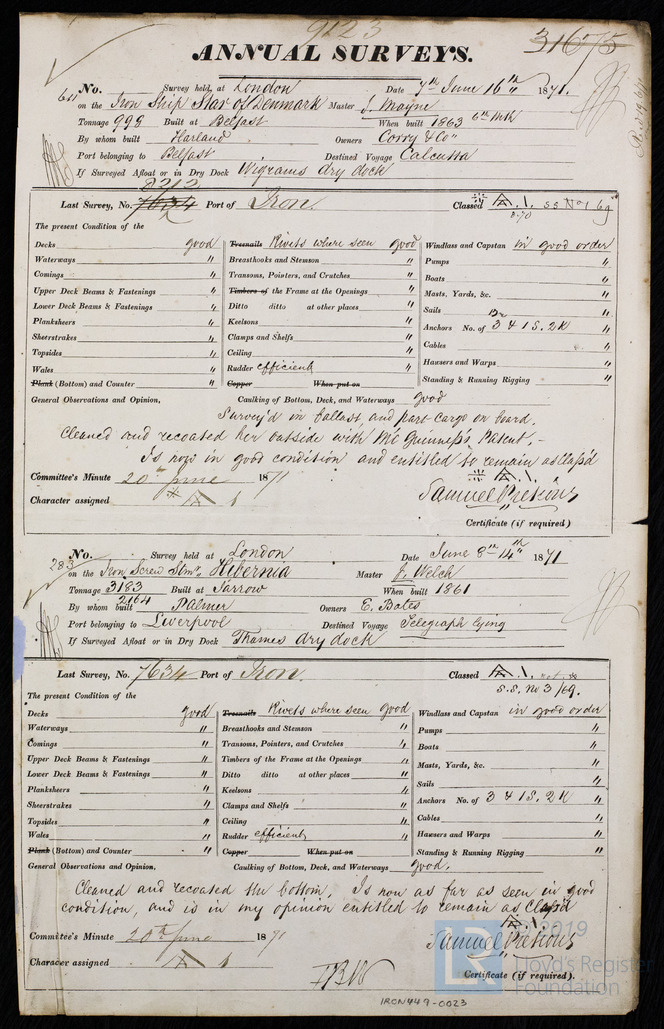 9123
31675
ANNUAL SURVEYS.
No. 611 Survey held at London Date 7th June 16th 1871.
on the Iron Ship Star of Denmark Master J. Mayne
Tonnage 998 Built at Belfast When built 1863 6th Mth
By whom built Harland Owners Corry & Co
Port belonging to Belfast Destined Voyage Calcutta
If Surveyed Afloat or in Dry Dock Wigrams dry dock
8212
Last Survey, No. 7634 Port of Iron. Classed A.1. SS No 1 69
8.70
The present Condition of the
Decks good Treenails Rivets where seen good Windlass and Capstan in good order
Waterways " Breasthooks and Stemson " Pumps "
Comings " Transoms, Pointers, and Crutches " Boats "
Upper Deck Beams & Fastenings " Timbers of the Frame at the Openings " Masts, Yards, &c. "
Lower Deck Beams & Fastenings " Ditto ditto at other places " Sails "
Planksheers " Keelsons " Anchors No. of 3 & 1 S. 2K "
Sheerstrakes " Clamps and Shelfs " Cables "
Topsides " Ceiling " Hawsers and Warps "
Wales " Rudder efficient Standing & Running Rigging "
Plank (Bottom) and Counter " Copper When put on
General Observations and Opinion, Caulking of Bottom, Deck, and Waterways good
Survey'd in ballast and part cargo on board.
Cleaned and recoated her outside with McGuinness's Patent.-
Is now in good condition and entitled to remain as Class'd
A.1
Committee's Minute 20th June 1871
Character assigned A 1
Samuel Pretious
Certificate (if required)
No. 283 Survey held at London Date June 8th 14th 1871
on the Iron Screw Stmr. Hibernia Master J. Welch
Tonnage 3183 Built at Jarrow When built 1861
2164
By whom built Palmer Owners E. Bates
Port belonging to Liverpool Destined Voyage Telegraph lying
If Surveyed Afloat or in Dry Dock Thames dry dock
Last Survey, No. 7634 Port of Iron. Classed A.1.
S.S. No 3/69.
The present Condition of the
Decks good Treenails Rivets where seen good Windlass and Capstan in good order
Waterways " Breasthooks and Stemson " Pumps "
Comings " Transoms, Pointers, and Crutches " Boats "
Upper Deck Beams & Fastenings " Timbers of the Frame at the Openings " Masts, Yards, &c. "
Lower Deck Beams & Fastenings " Ditto ditto at other places " Sails "
Planksheers " Keelsons " Anchors No. of 3 & 1 S. 2K "
Sheerstrakes " Clamps and Shelfs " Cables "
Topsides " Ceiling " Hawsers and Warps "
Wales " Rudder efficient Standing & Running Rigging "
Plank (Bottom) and Counter " Copper When put on
General Observations and Opinion, Caulking of Bottom, Deck, and Waterways good.
Cleaned and recoated the bottom. Is now as far as seen in good
condition, and is in my opinion entitled to remain as Class'd
A.1
Committee's Minute 20th June 1871
Character assigned A 1
Samuel Pretious
Certificate (if required).
© 2019
LR Lloyd's Register
Foundation
IRON449-0023